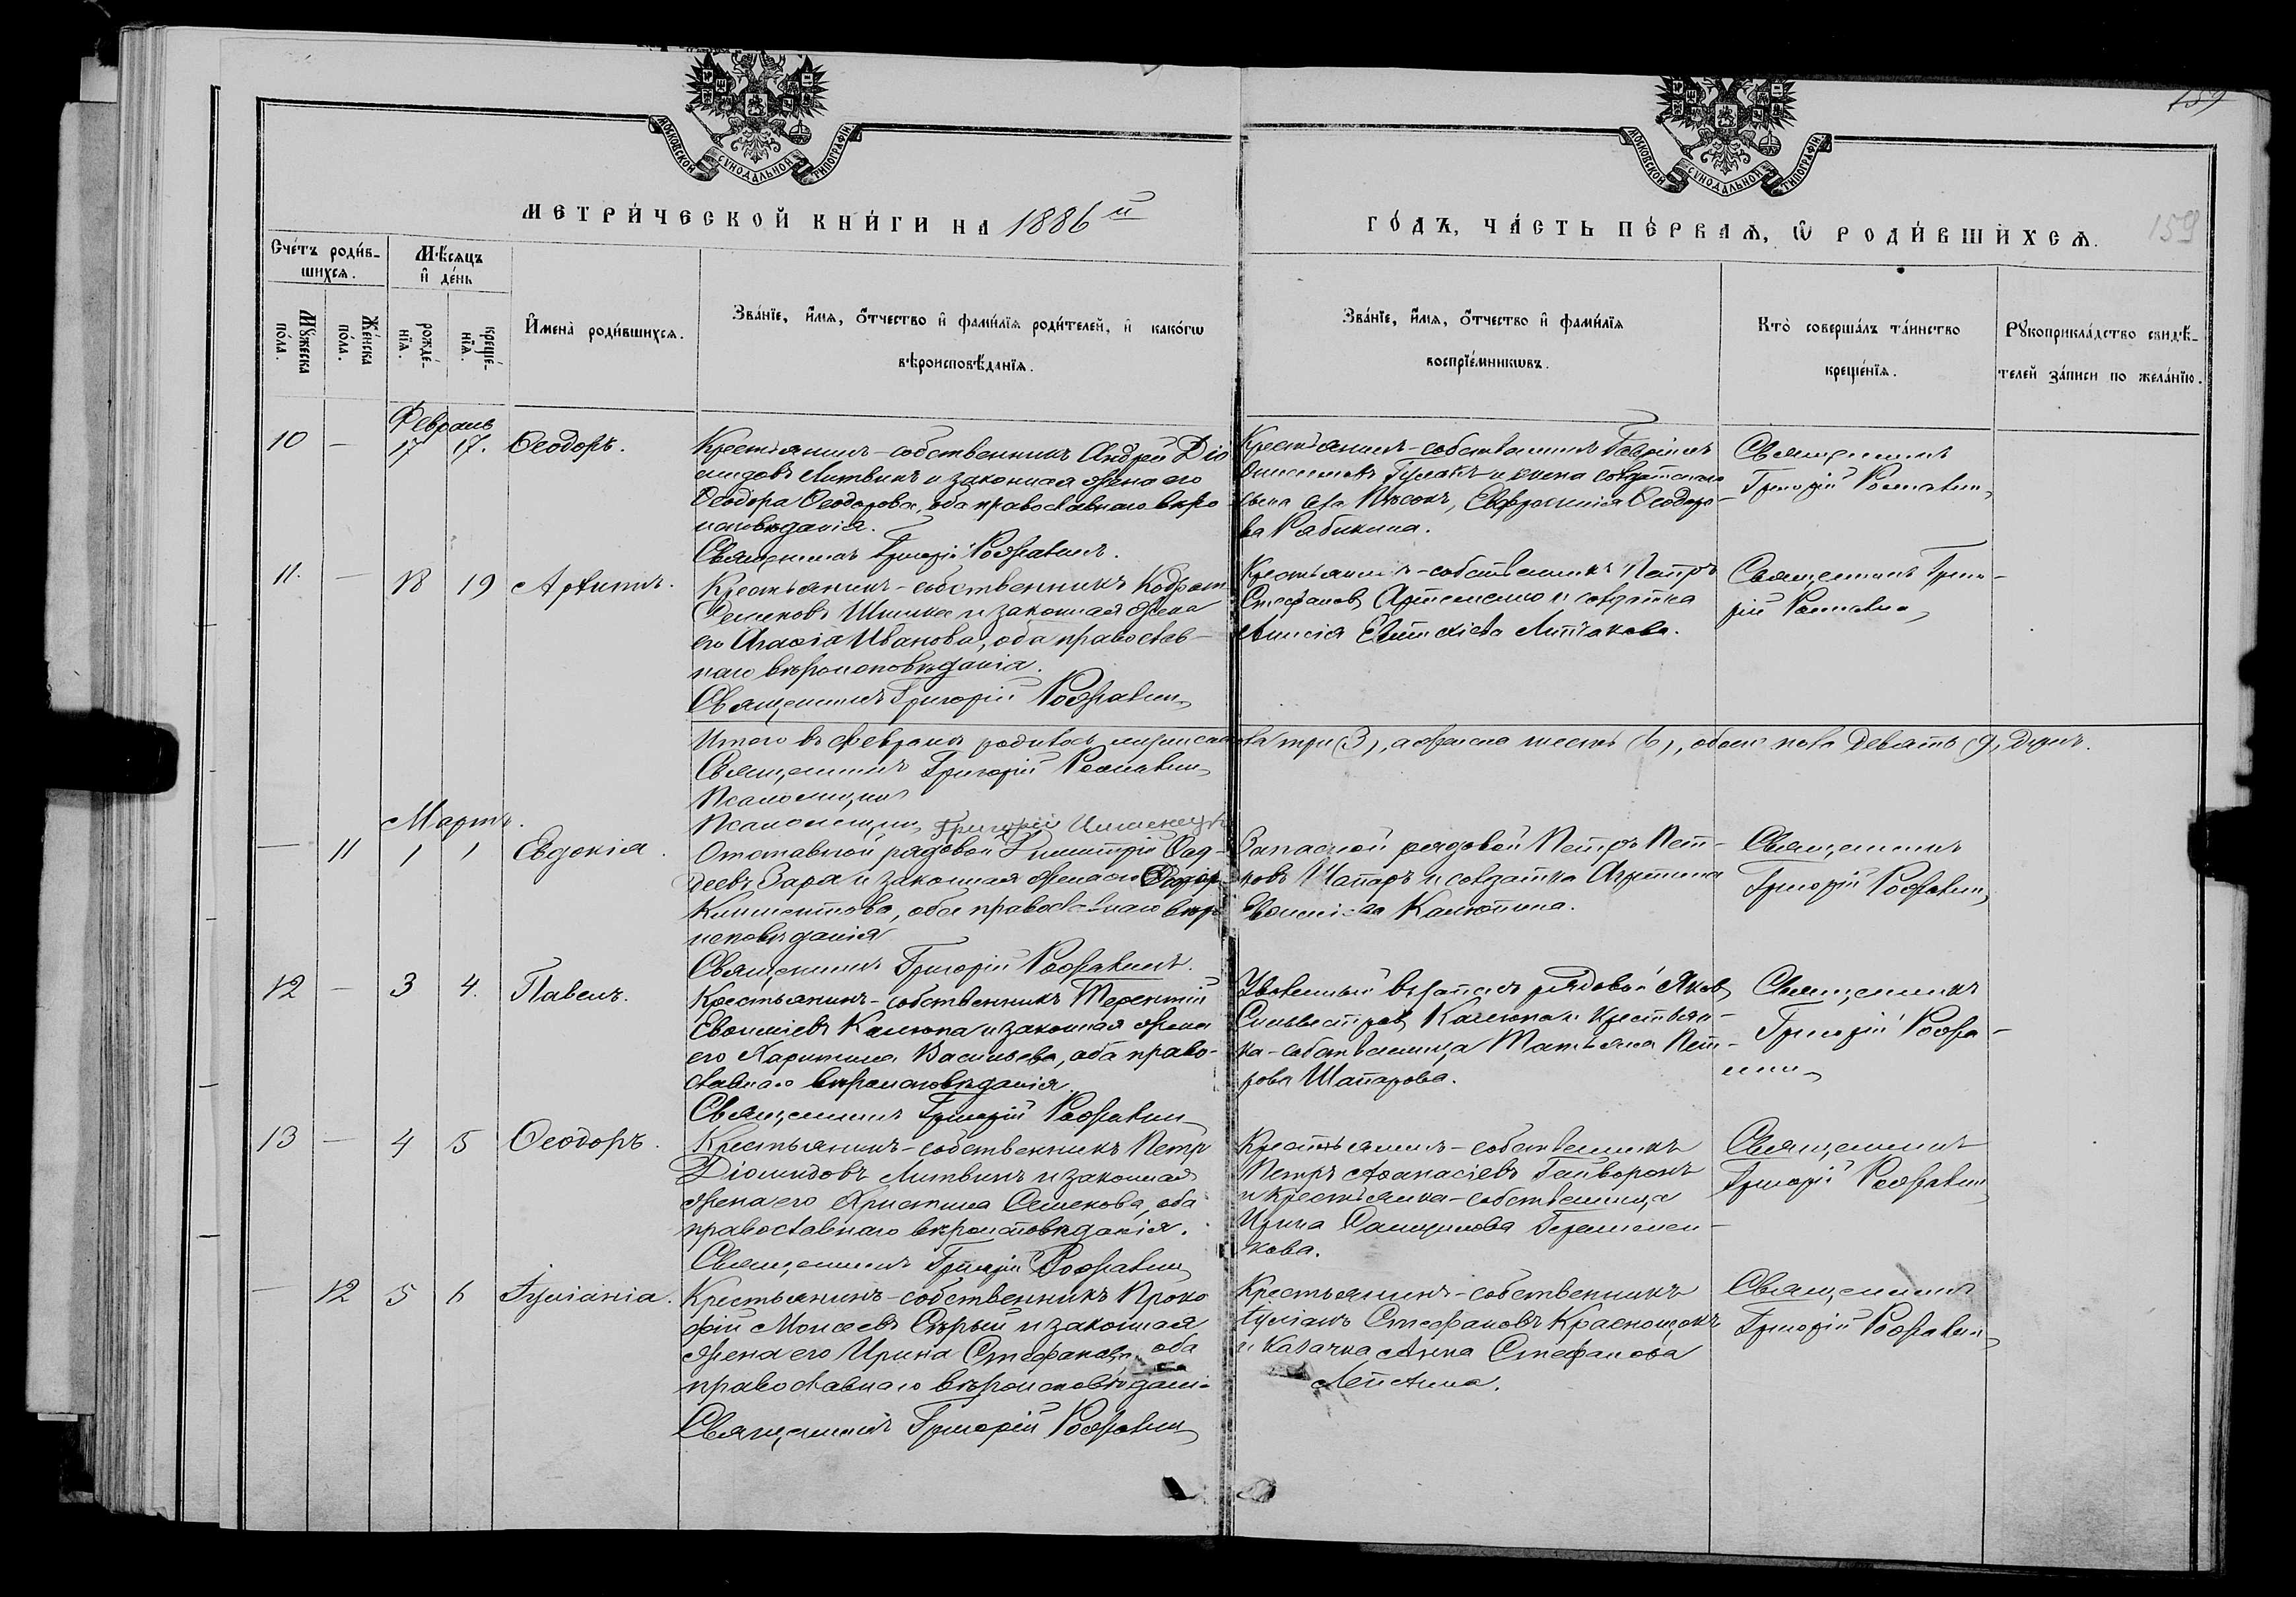 159
МОСКОВСКОЙ СУНОДАЛЬНОЙ ТИПОГРАФІИ
МОСКОВСКОЙ СУНОДАЛЬНОЙ ТИПОГРАФІИ
МЕТРИ́ЧЕСКОЙ КНИ́ГИ НА 1886 й
ГО́ДЪ, ЧА́СТЬ ПЕ́РВАѦ, Ѽ РОДИ́ВШИХСѦ. 159
Сче́тъ роди́в-
шихсѧ.
Мꙋ́жеска по́ла.
Же́нска по́ла.
Мѣ́сѧцъ
и҆ де́нь
рожде́-нїѧ.
креще́-нїѧ.
И҆мена̀ роди́вшихсѧ.
Зва́нїе, и҆́мѧ, ѻ҆́тчество и҆ фами́лїѧ роди́телей, и҆ како́гѡ
вѣроисповѣ́данїѧ.
Зва́нїе, и҆́мѧ, ѻ҆́тчество и҆ фами́лїѧ
воспрїе́мникѡвъ.
Кто̀ соверша́лъ та́инство
креще́нїѧ.
Рꙋкоприкла́дство свидѣ́-
телей за́писи по жела́нїю.
Февраль
10 — 17 17. Ѳеодоръ.
Крестьянинъ-собственникъ Андрей Діо
мидовъ Литвинъ и законная жена его
Ѳеодора Ѳеодорова, оба православнаго вѣро
исповѣданія.
Священникъ Григорій
Крестьянинъ-собственникъ Гавріилъ
Гулакъ и жена
села Пѣсокъ, Евфросинія Ѳеодоро-
ва Рябикина.
Священникъ
Григорій
11. — 18 19 Архипъ.
Крестьянинъ-собственникъ Кодратъ
Семеновъ Шишка и законная жена
его Агафія Иванова, оба православ-
наго вѣроисповѣданія.
Священникъ Григорій
Крестьянинъ-собственникъ Петръ
Стефановъ Артеменко и солдатка
Анисія
Священникъ Григо-
рій
Итого въ Февралѣ родилось мужеска пола три (3), а женска шесть (6), обоего пола девять (9) душъ.
Священникъ Григорій
Псаломщикъ
Псаломщикъ Григорій
Мартъ.
— 11 1 1 Евдокія.
Отставной рядовой Димитрій Ѳад-
деевъ Заря и законная жена его
Климентова, оба православнаго вѣро
исповѣданія
Священникъ Григорій
Запасной рядовой Петръ Пет-
ровъ Шапаръ и солдатка Агрипина
Калюпина.
Священникъ
Григорій
12 — 3 4. Павелъ.
Крестьянинъ-собственникъ Терентій
Евѳиміевъ Калюпа и законная жена
его Харитина Васильева, оба право-
славнаго вѣроисповѣданія.
Священникъ Григорій
Уволенный въ запасъ рядовой Яковъ
Сильвестровъ Калюпа и крестьян-
ка-собственница Татьяна Пет-
рова Шапарова.
Священникъ
Григорій
13 — 4 5 Ѳеодоръ.
Крестьянинъ-собственникъ Петръ
Діомидовъ Литвинъ и законная
жена его Христина Семенова, оба
православнаго вѣроисповѣданія.
Священникъ Григорій
Крестьянинъ-собственникъ
Петръ Аѳанасіевъ Гайворонъ
и крестьянка-собственница
Ирина
кова.
Священникъ
Григорій
— 12 5 6 Іуліанія.
Крестьянинъ-собственникъ Проко
фій Моисеевъ Сѣрый и законная
жена его Ирина Стефанова, оба
православнаго вѣроисповѣдані-
Священникъ Григорій
Крестьянинъ-собственникъ
Іуліанъ Стефановъ Краснощокъ
и казачка Анна Стефанова
Священникъ
Григорій